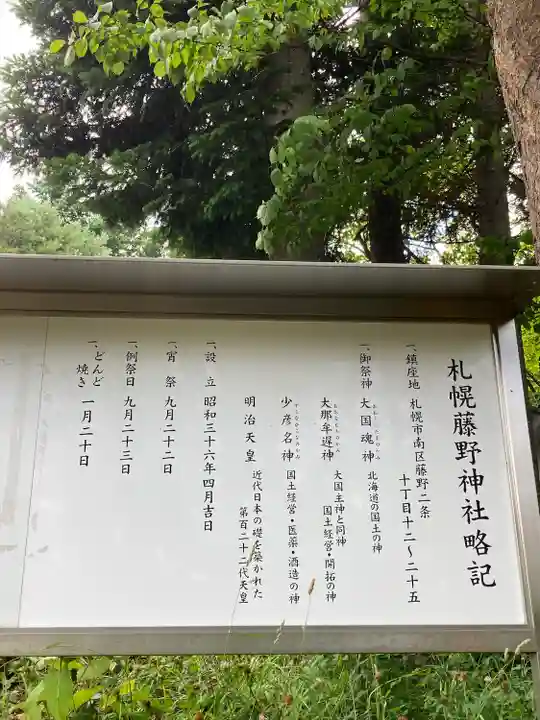 札幌藤野神社略記
一、鎮座地 札幌市南区藤野二条
十丁目十二〜二十五
一、御祭神 大国魂神 北海道の国土の神
大那牟遅神 大国主神と同神
国土経営・開拓の神
少彦名神 国土経営・医薬・酒造の神
明治天皇 近代日本の礎を築かれた
第百二十二代天皇
一、設立 昭和三十六年四月吉日
一、宵祭 九月二十二日
一、例祭日 九月二十三日
一、どんど
焼き 一月二十日